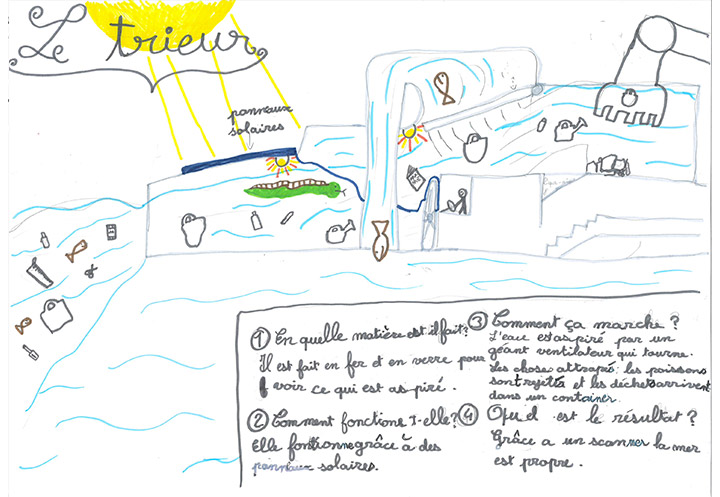 Le trieur
panneaux
solaires
① En quelle matière est il fait?
Il est fait en fer et en verre pour
voir ce qui est aspiré.
② Comment fonctione t-elle?
Elle fontionne grâce à des
panneaux solaires.
③ Comment ça marche?
L'eau est aspiré par un
géant ventilateur qui tourne.
Les chose attrapé: les poissons
sont rejetta et les déchets arrivent
dans un container.
④ Quel est le résultat?
Grâce a un scanner la mer
est propre.